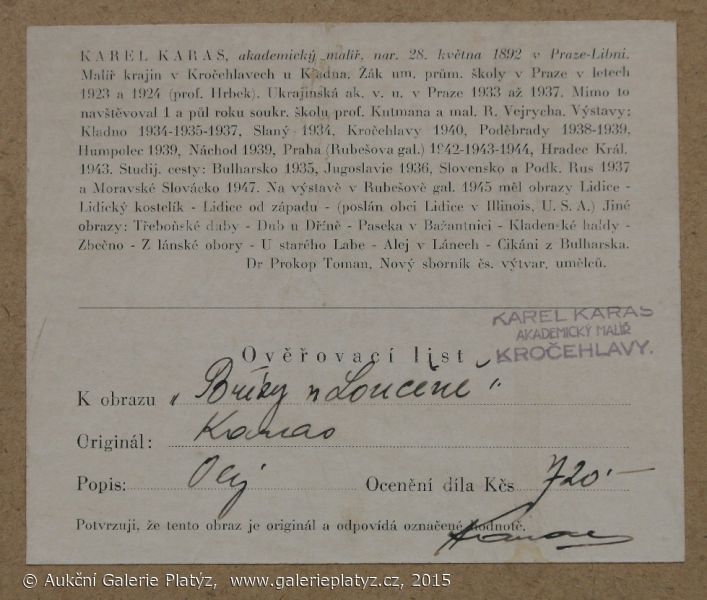 KAREL KARAS, akademický malíř, nar. 28. května 1892 v Praze-Libni.
Malíř krajin v Kročehlavech u Kladna. Žák um. prům. školy v Praze v letech
1923 a 1924 (prof. Hrbek). Ukrajinská ak. v. u. v Praze 1933 až 1937. Mimo to
navštěvoval 1 a půl roku soukr. školu prof. Kutmana a mal. R. Vejrycha. Výstavy:
Kladno 1934-1935-1937, Slaný 1934, Kročehlavy 1940, Poděbrady 1938-1939,
Humpolec 1939, Náchod 1939, Praha (Rubešova gal.) 1942-1943-1944, Hradec Král.
1943. Studij. cesty: Bulharsko 1935, Jugoslavie 1936, Slovensko a Podk. Rus 1937
a Moravské Slovácko 1947. Na výstavě v Rubešově gal. 1945 měl obrazy Lidice -
Lidický kostelík - Lidice od západu - (poslán obci Lidice v Illinois, U. S. A.) Jiné
obrazy: Třeboňské duby - Dub u Dříně - Paseka v Bažantnici - Kladenské haldy -
Zbečno - Z lánské obory - U starého Labe - Alej v Lánech - Cikáni z Bulharska.
Dr Prokop Toman, Nový sborník čs. výtvar. umělců.
KAREL KARAS
AKADEMICKÝ MALÍŘ
KROČEHLAVY.
Ověřovací list
K obrazu „Břízy u Loučené"
Originál: Karas
Popis: Olej Ocenění díla Kčs 720·—
Potvrzuji, že tento obraz je originál a odpovídá označené hodnotě.
Karas
© Aukční Galerie Platýz, www.galerieplatyz.cz, 2015